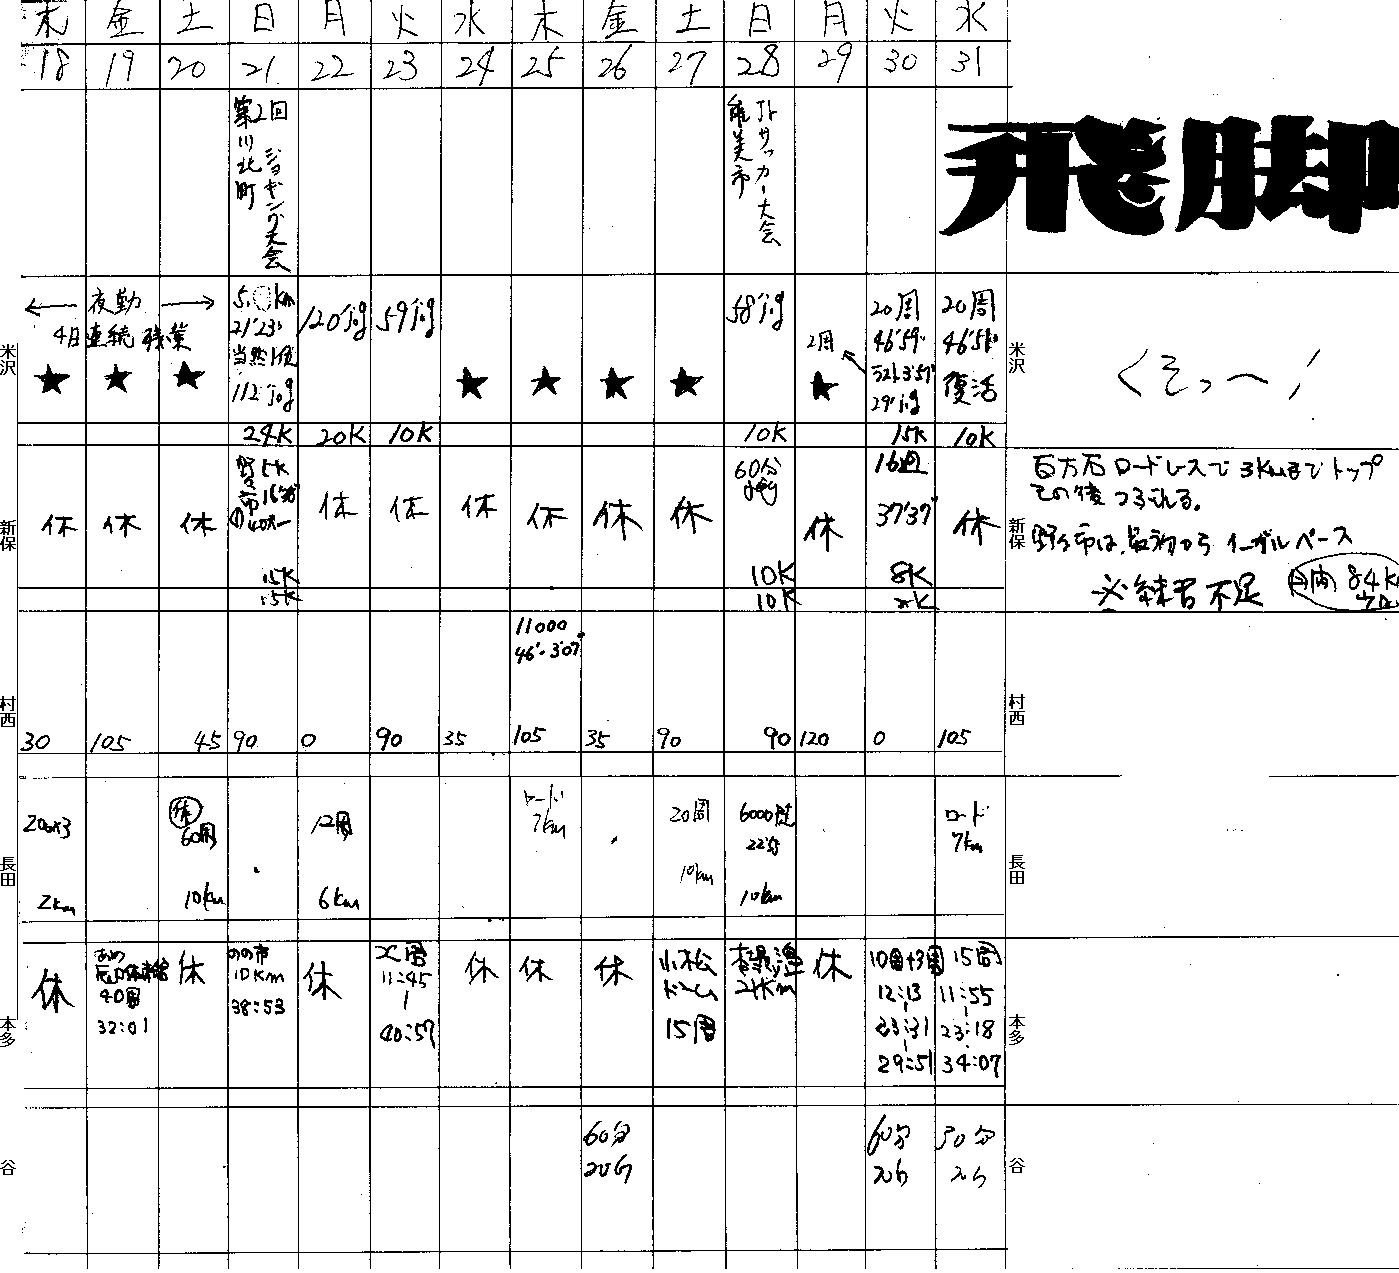 木 金 土 日 月 火 水 木 金 土 日 月 火 水
18 19 20 21 22 23 24 25 26 27 28 29 30 31
第2回
川北町
ジョギング大会
能美市
サッカー大会
飛脚
米沢
← 夜勤 →
4日連続残業
★ ★ ★
21'23"
当然
112'jog
24K
120'jog
20K
59'jog
10K
★ ★ ★ ★
58'jog
10K
2周
★
20周
46'59"
ラスト3'57"
29'jog
15K
20周
復活
10K
米沢
くそっ〜!
新保
休 休 休
野々市
5K
15K
15K
休 休 休 休 休 休
60分
10K
10K
休
16周
37'37"
8K
休
新保
百万石ロードレースで3Kmまでトップ
その後つぶれる。
野々市は、最初からイーブルペース
※練習不足
月間 84K
村西
11000
46'-3'07"
30 105 45 90 0 90 35 105 35 90 90 120 0 105
村西
長田
200×3
2km
休
60周
10km
12周
6km
ロード
7km
20周
10km
6000
22分
10km
ロード
7km
長田
本多
休
40周
32:01
休
のの市
10Km
38:53
休
11:45
40:57
休 休 休
小松
ドーム
15周
21Km
休
10周+3周
12:13
23:31
29:51
15周
11:55
23:18
34:07
本多
谷
60分
60分
30分
谷